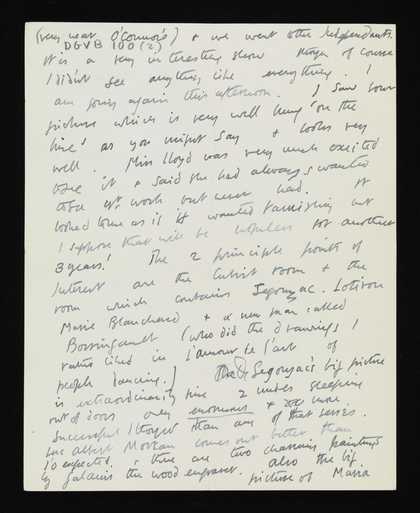 (very near O'Connors) & we went to the Independants.
DGVB 100 (2)
It is a very interesting show though of course
I didn't see anything like everything. I
am going again this afternoon. I saw your
picture which is very well hung 'on the
line' as you might say & looks very
well. Miss Lloyd was very much excited
to see it & said she had always wanted
to see yr. work but never had. It
looked to me as if it wanted varnishing but
I suppose that will be hopeless for another
3 years! The 2 principle points of
interest are the Cubist room & the
room which contains Segonzac. Lotiron
Marie Blanchard & a new man called
Boussingault (who did the drawings I
rather liked in L'amour de l'art of
people dancing.) The Segonzac's big picture
is extraordinarily fine 2 nudes sleeping
out of doors very enormous & more
successful I thought than any of that series.
Luc Albert Moreau comes out better than
I'd expected & there are two charming paintings
by Galanis the wood engraver. also the big
picture of Maria